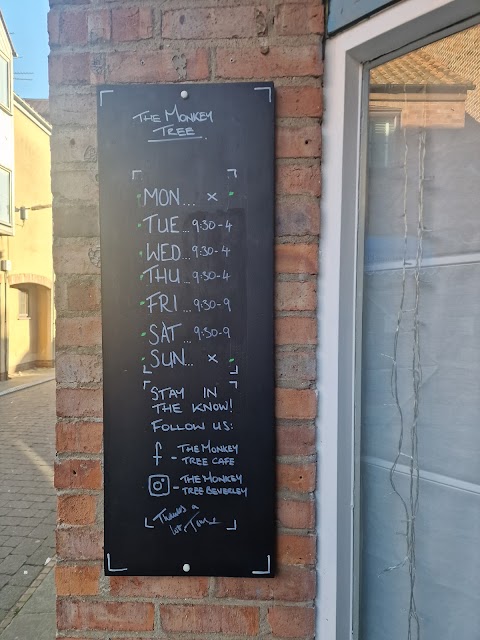 THE MONKEY
TREE.
MON... x
TUE... 9:30-4
WED... 9:30-4
THU... 9:30-4
FRI... 9:30-9
SAT... 9:30-9
SUN... x
STAY IN
THE KNOW!
FOLLOW US:
f - THE MONKEY
TREE CAFE
- THE MONKEY
TREE BEVERLEY
Thanks a
lot